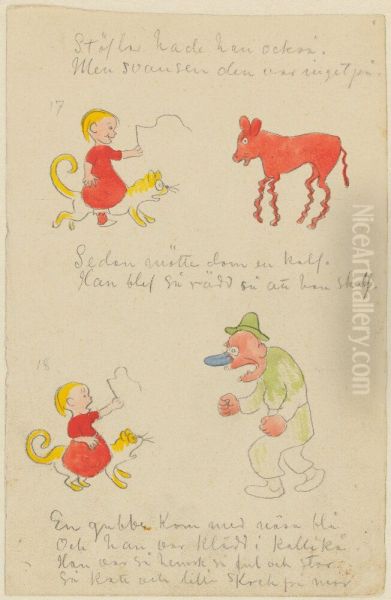 Stöflar hade han också.
Men svansen den var inget på.
17
Sedan mötte dom en kalf.
Han blef så rädd så att han skalf.
18
En gubbe kom med näsa blå
Och han var klädd i
Han var så hemsk så ful och stor
Så Kate och lille skrek på mor
NiceArtGallery.com